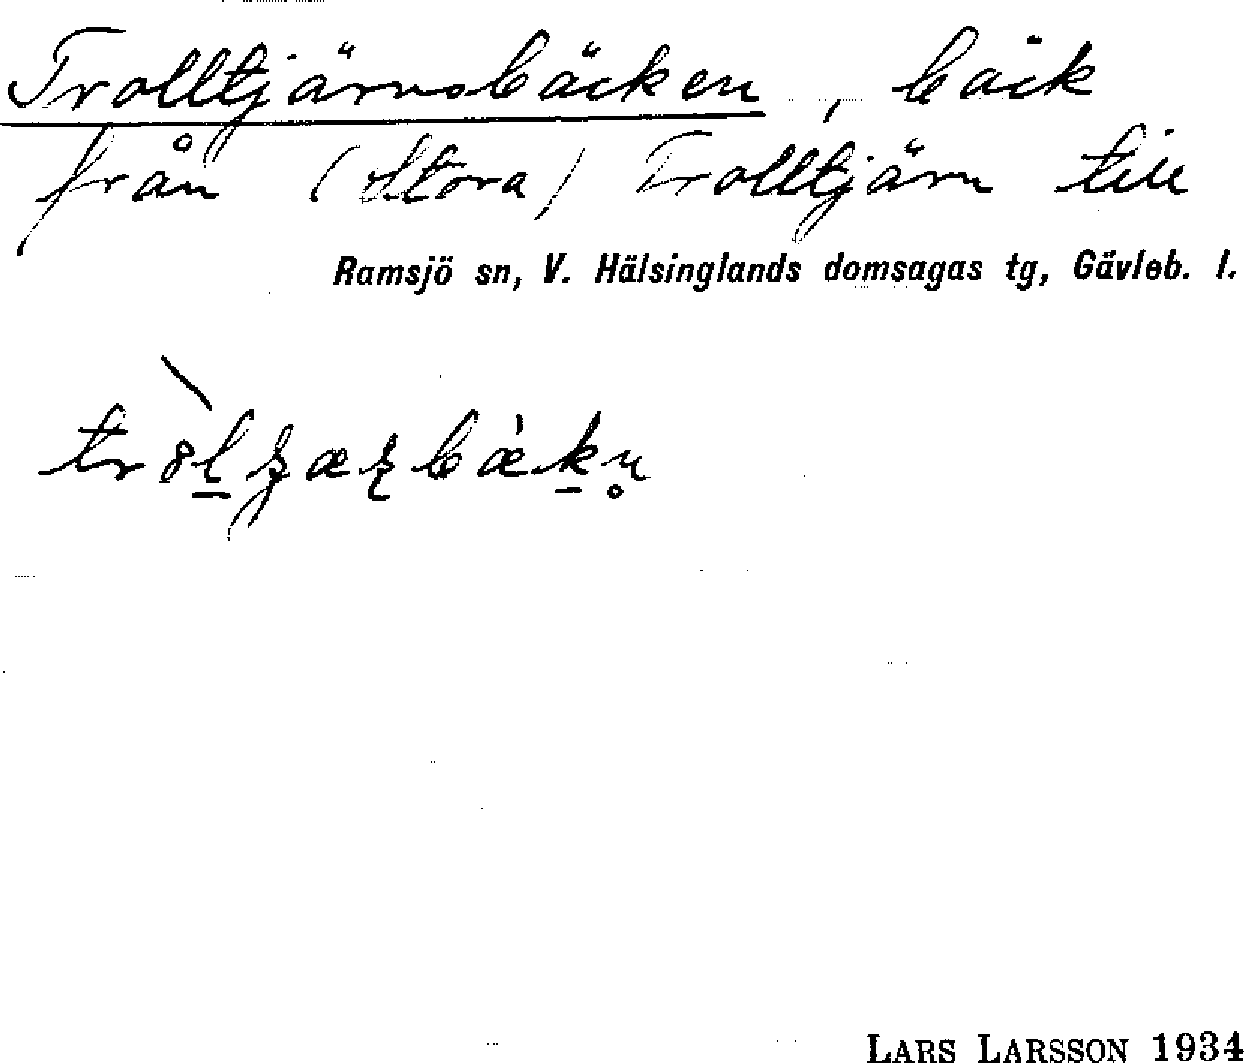 Trolltjärnsbäcken, bäck
från (Stora) Trolltjärn till
Ramsjö sn, V. Hälsinglands domsagas tg, Gävleb. l.
LARS LARSSON 1934